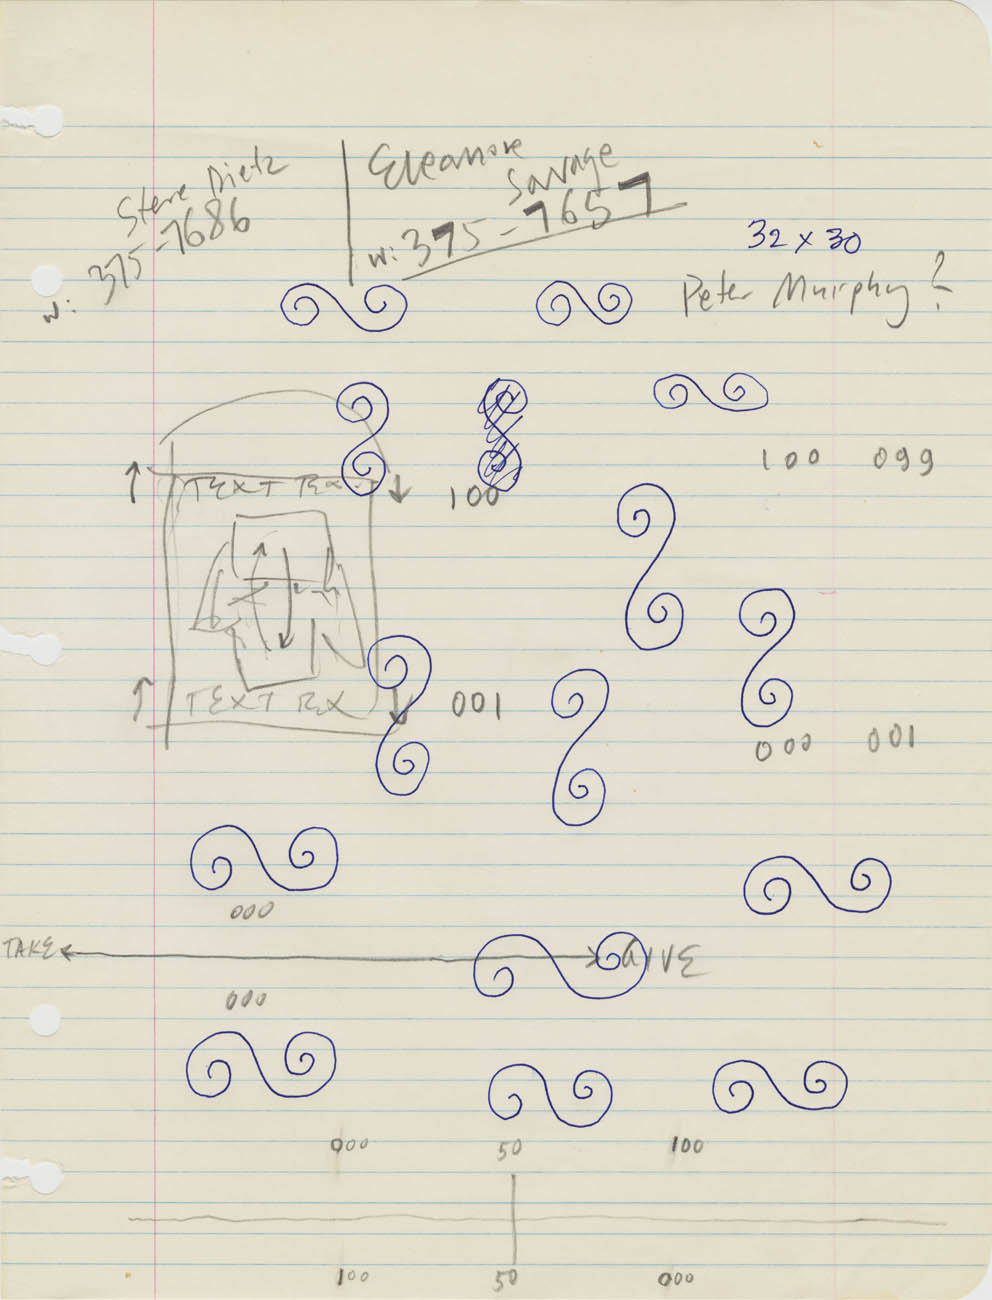 Steve Dietz
w: 375-7686
Eleanore
Savage
w: 375-7657
32 x 30
Peter Murphy?
100 099
TEXT TEX
100
TEXT TEX
001
000 001
000
TAKE GIVE
000
000 50 100
100 50 000